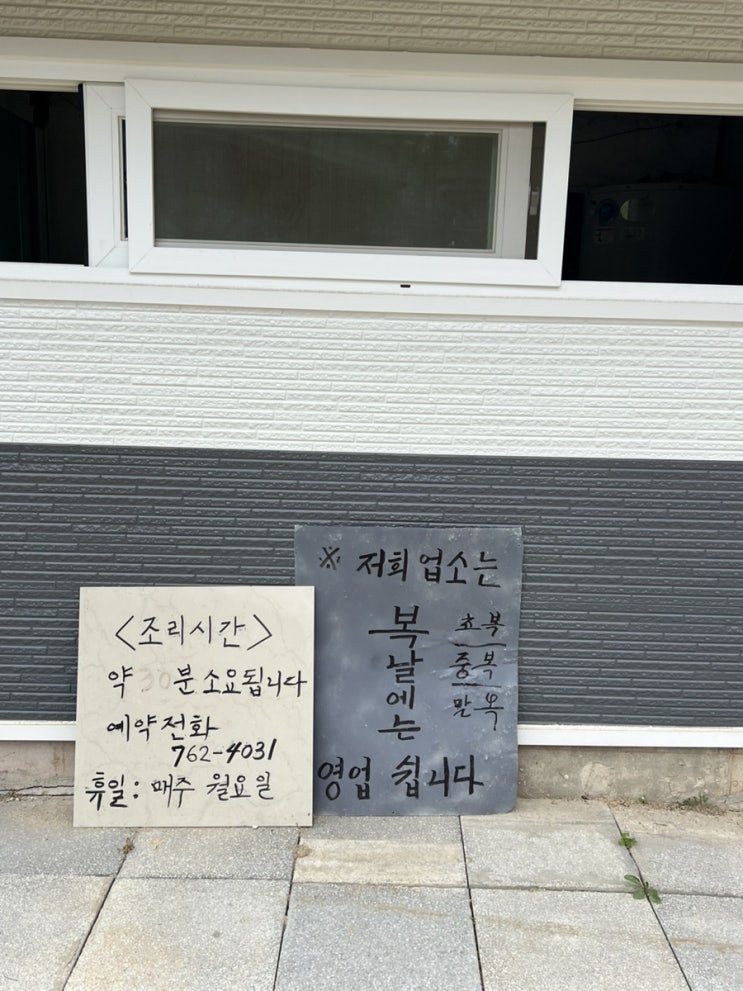 <조리시간>
약 30분 소요됩니다
예약전화
762-4031
휴일: 매주 월요일
※ 저희 업소는
복날에는
초복
중복
말복
영업 쉽니다